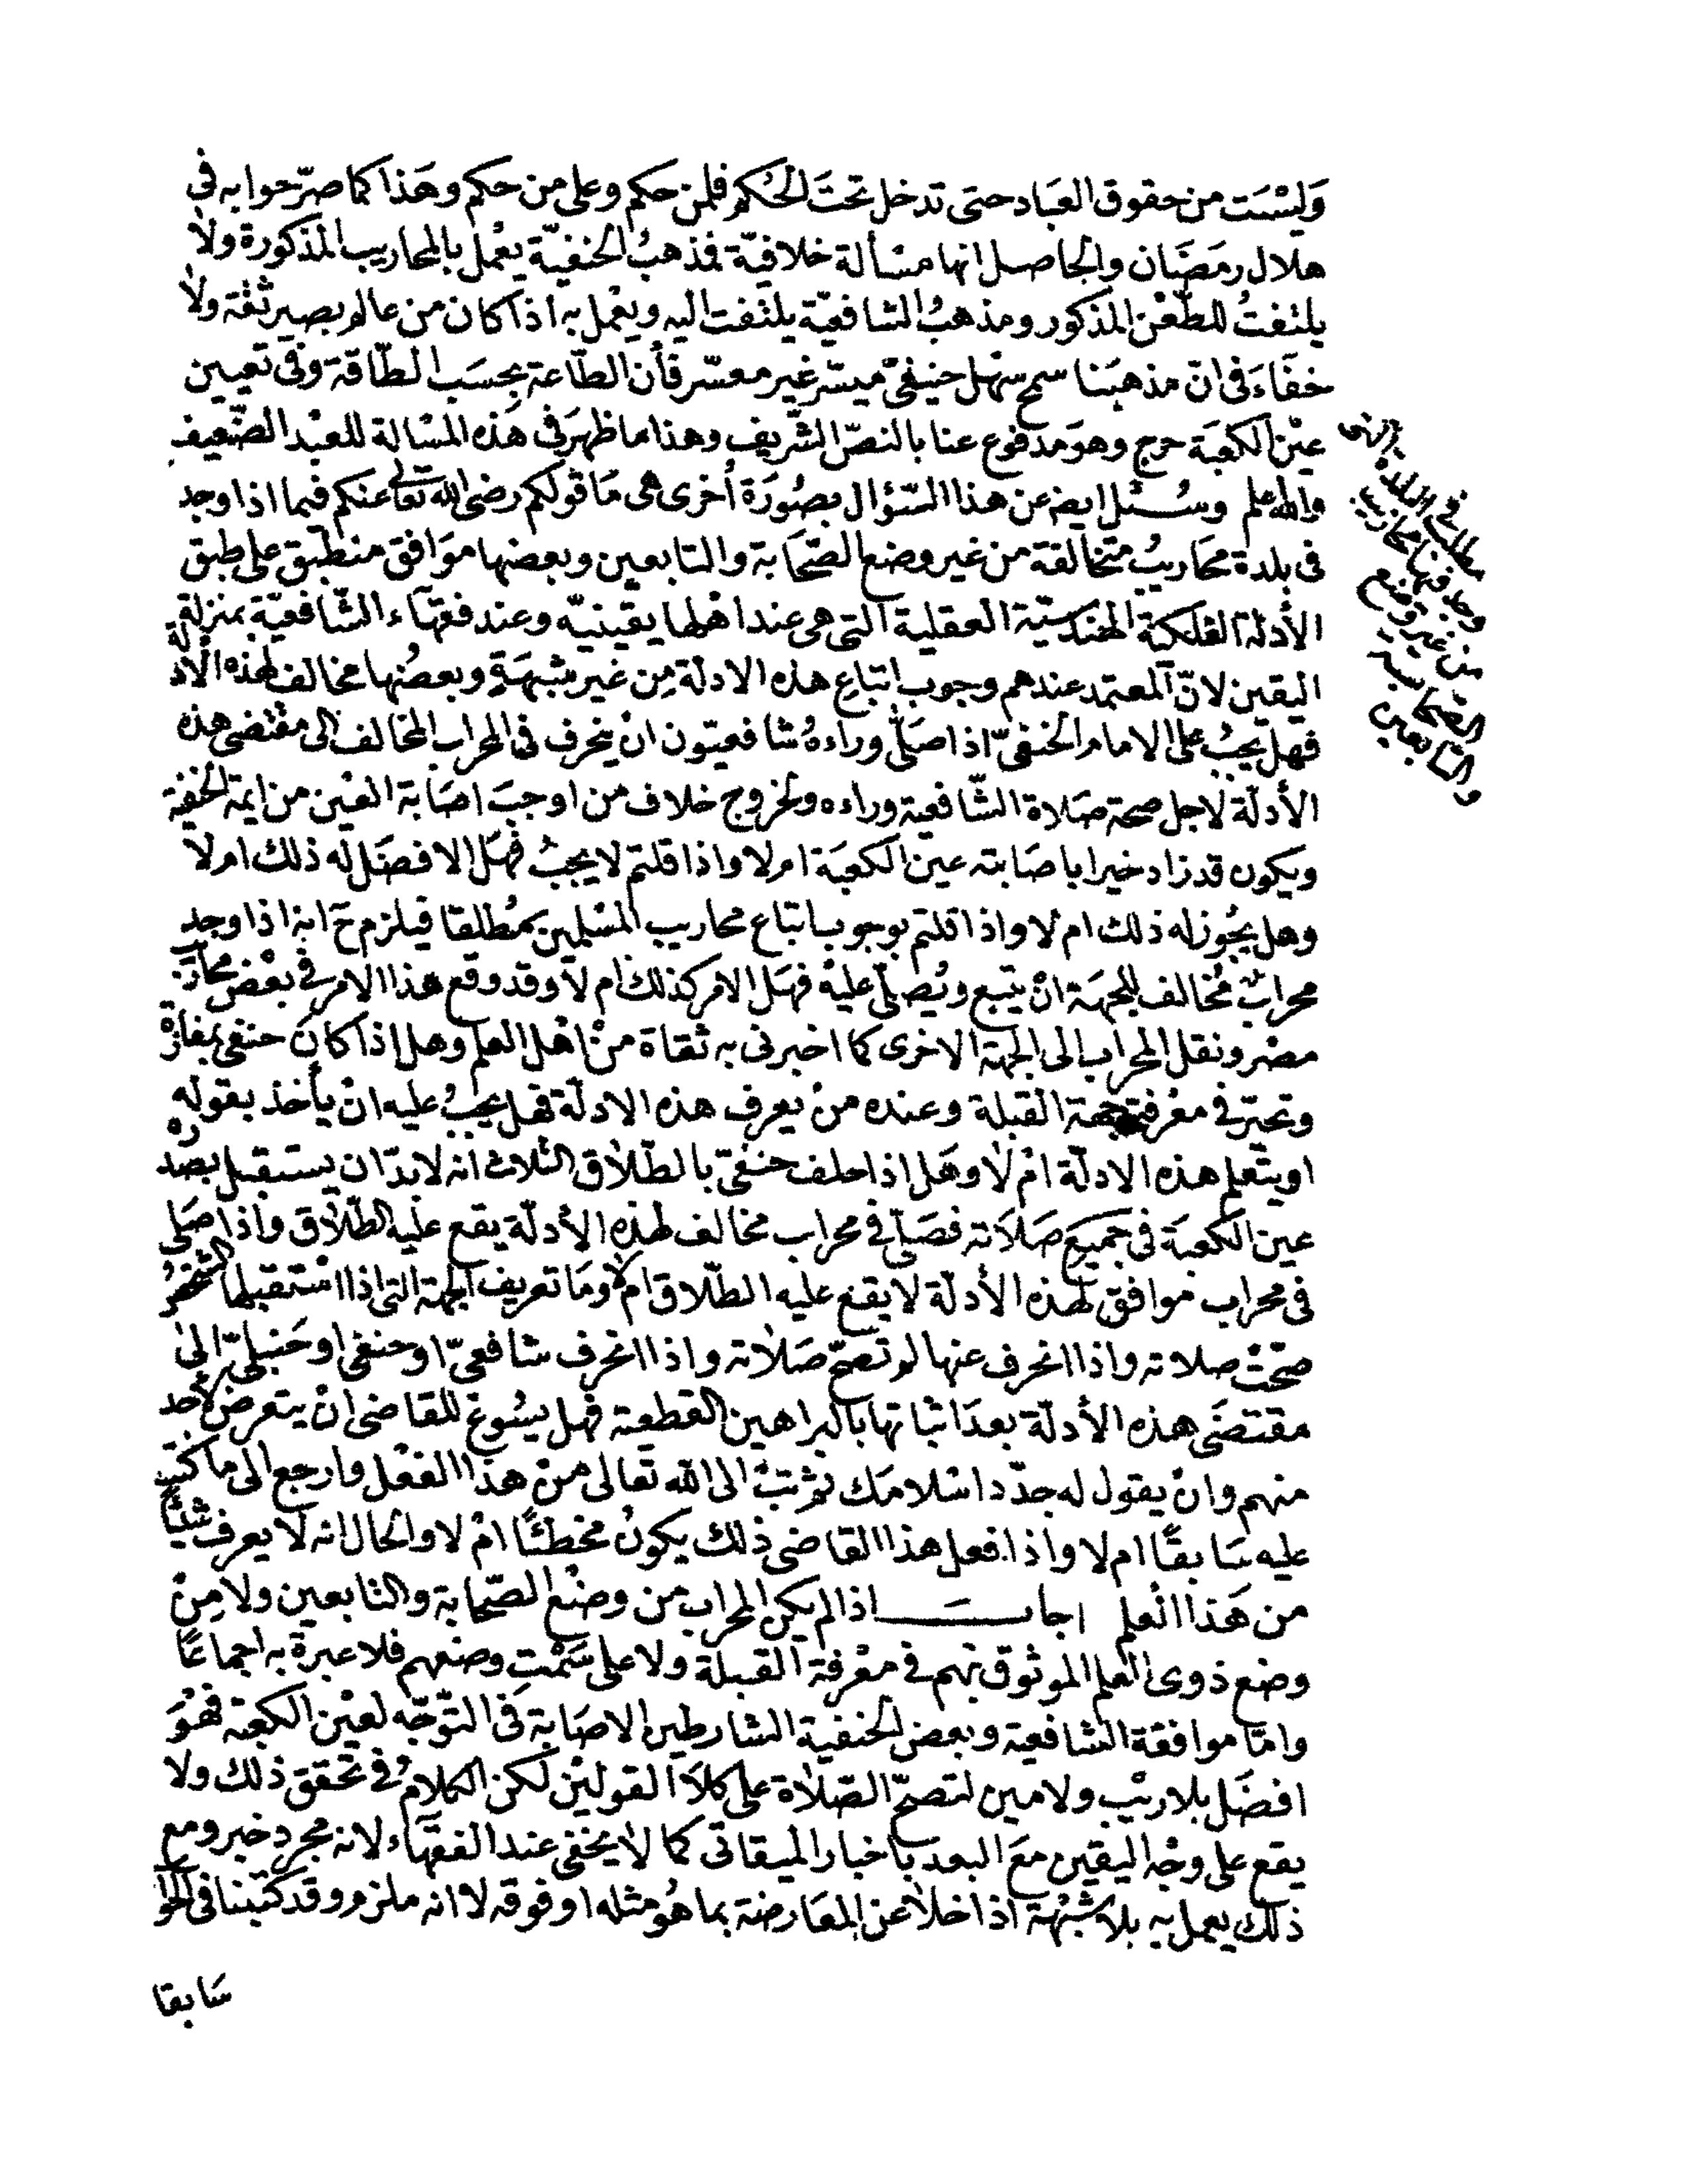 وَليْسَت من حقوق العبَاد حتى تدخل تحتَ الحُكم فلمن حكم وعلى من حكم وهَذا كما صرّحوا به فى
هلال رمضَان والحاصل انها مسْألة خلافيّة فمذهبُ الحنفيّة يعْمل بالمحاريب المذكورة ولا
يلتفتُ للطّعْن المذكور ومذهبُ الشافعيّة يلتفت اليه ويعْمل به اذا كان من عالم بصير ثقة ولا
خفَاءَ فى انّ مذهبَنا سمح سهْل حنيفىّ ميسّر غير معسّر فأن الطّاعة بحسَب الطّاقة وفى تعيين
عيْن الكعبَة حرج وهوَ مدفوع عنا بالنصّ الشّريف وهذا ما ظهرَ فى هَذه المسْالة للعبْد الضّعيف
والله اعلم وسُئل ايضا عن هذا السّؤال بصُورَة أخرى هى مَا قولكم رضى الله تعالى عنكم فيما اذا وجد
فى بلدة محَاريبُ متخالفة من غير وضع الصّحَابة والتابعين وبعضها موَافق منطبق على طبق
الأدلة الفلكية الهندسيّة العقلية التى هى عند اهْلها يقينيّه وعند فقهآء الشّافعيّة بمنزلة
اليقين لانّ المعتمد عندهم وجوب اتباع هذه الادلّة مِن غير شبهَةٍ وبعضُها مخالف لهذه الأدلة
فهل يجبُ على الامام الحنفىّ اذا صَلّى وراءهُ شافعيّون انْ ينحرف فى المحراب المخالف الى مقتضى هذه
الأدلّة لاجل صحة صَلاة الشّافعية وراءه ولخروج خلاف من اوجبَ اصَابة العيْن من ايمة الحنفية
ويكون قد زاد خيرا باصَابته عين الكعبَة ام لا واذا قلتم لا يجبُ فهَل الافضَل له ذلك ام لا
وهل يجُوز له ذلك ام لا واذا قلتم بوجوب اتباع محاريب المسْلمين مُطلقا فيلزم حَ انه اذا وجد
محرابٌ مُخالف للجهَة انْ يتبع ويُصلّى عليْه فهَل الامر كذلك ام لا وقد وقع هذا الامر فى بعْض محلات
مصْر ونقل المحراب الى الجهة الاخرى كما اخبرنى به ثقاة منْ اهْل العلم وهل اذا كانَ حنفى بمفازة
وتحيّر فى معْرفة جهة القبلة وعنده منْ يعرف هذه الادلّة فهل يجبُ عليه انْ يأخذ بقوله
او يتعلم هذه الادلّة امْ لا وهَل اذا حلف حنفىّ بالطّلاق الثلاث انه لا بدّ ان يستقبل بصدره
عين الكعبَة فى جميَع صَلاَته فصَلّى فى محراب مخالف لهذه الأدلّة يقع عليْه الطّلاَق واذا صَلى
فى محراب موافق لهذه الأدلّة لا يقع عليه الطّلاق ام لا ومَا تعريف الجهة التى اذا اسْتقبلها الشخصُ
صحّتْ صلاته واذا انحرف عنها لم تصحّ صَلاته واذا انحرف شافعىّ او حنفى او حَنبلىّ الى
مقتضَى هذه الأدلّة بعدَ اثباتها بالبراهين القطعية فهل يسُوغ للقاضى انْ يتعرض لأحد
منهم وانْ يقول له جدّد اسْلامَك ثم تبْ الى الله تعَالى منْ هذا الفعْل وارجع الى ما كنت
عليه سَابقًا ام لا واذا فعل هذا القاضى ذلك يكونُ مخطئًا امْ لا والحال انه لا يعرف شيْئًا
من هَذا العلم اجابَ اذا لم يكن المحراب من وضْع الصّحابة والتابعين ولا مِنْ
وضع ذوى العلم الموثوق بهم فى معْرفة القبلة ولا على سَمْتِ وضعهم فلا عبرةَ به اجماعًا
وامّا موافقة الشافعية وبعض الحنفية الشارطين الاصَابة فى التوّجّه لعيْن الكعبة فهُوَ
افضَل بلا ريْب ولا مين لتصحّ الصّلاة على كلاَ القوليْن لكن الكلامُ فى تحقق ذلك ولا
يقع على وجْه اليقين معَ البعد باخبار الميقاتى كما لا يخفى عند الفقهآء لانه مجرد خبر ومع
ذلك يعمل به بلا شبْهة اذا خلا عن المعَارضة بما هُو مثله او فوقه لا انه ملزم وقد كتبنا فى الحوا
سَابقا
وجد فيها محاريب
من غير وضع
الصّحابة
والتابعين